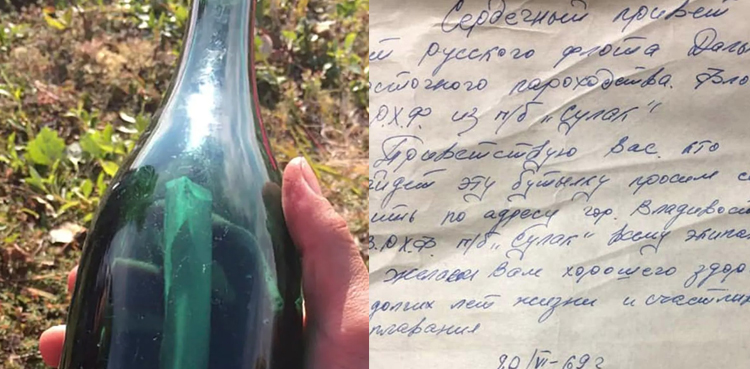 Сердечный привет
Русского флота Даль
сточного пароходства.
О.Х.Ф. из п/б „Сулак"
Приветствую Вас кто
эту бутылку просим
ить по адресу гор. Владивос
В.О.Х.Ф. п/б „Сулак" всему экипа
желаем Вам хорошего здор
долгих лет жизни и счастли
плавания
20/VI-69г